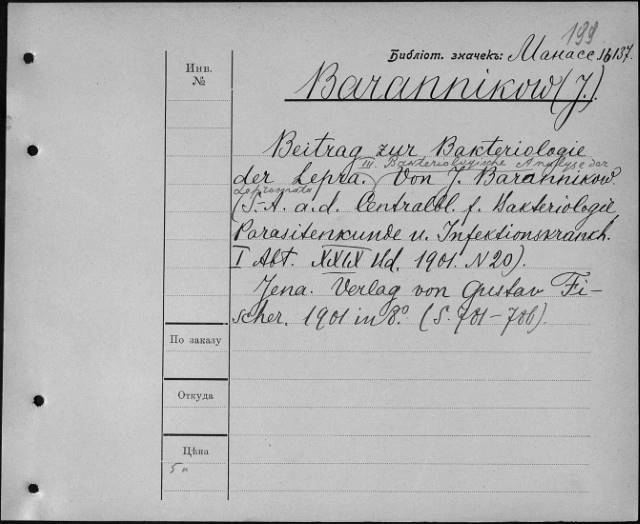 199
Библіот. значекъ: Манасс 16137.
Инв.
№
Barannikow (J.).
Beitrag zur Bakteriologie
III. Bakteriologische Analyse der
der Lepra. Von J. Barannikow.
Lepromata
(S.-A. a. d. Centralbl. f. Bakteriologie
Parasitenkunde u. Infektionskrankh.
I Abt. XXIX Bd. 1901. N 20).
Jena. Verlag von Gustav Fi-
scher. 1901 in 8º. (S. 701-706).
По заказу
Откуда
Цѣна
5 к